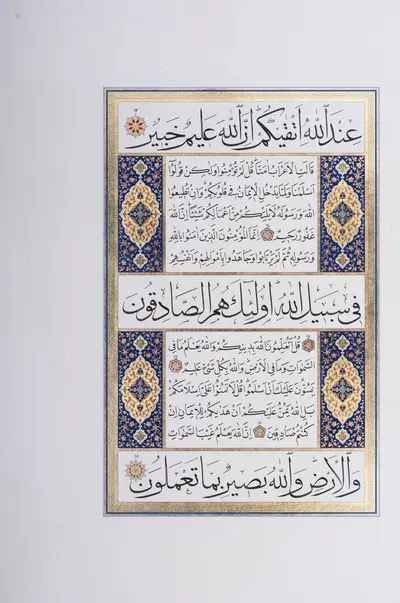 عِنْدَ اللّٰهِ اَتْقٰیكُمْ اِنَّ اللّٰهَ عَلیمٌ خَبیرٌ
قالَتِ الْاَعْرابُ اٰمَنّا قُلْ لَمْ تُؤْمِنُوا وَلٰكِنْ قُولُوا
اَسْلَمْنا وَلَمّا یَدْخُلِ الْایمانُ فی قُلُوبِكُمْ وَاِنْ تُطیعُوا
اللّٰهَ وَرَسُولَهُ لا یَلِتْكُمْ مِنْ اَعْمالِكُمْ شَیْئًا اِنَّ اللّٰهَ
غَفُورٌ رَحیمٌ اِنَّمَا الْمُؤْمِنُونَ الَّذینَ اٰمَنُوا بِاللّٰهِ
وَرَسُولِهِ ثُمَّ لَمْ یَرْتابُوا وَجاهَدُوا بِاَمْوالِهِمْ وَاَنْفُسِهِمْ
فی سَبیلِ اللّٰهِ اُولٰئِكَ هُمُ الصّادِقُونَ
قُلْ اَتُعَلِّمُونَ اللّٰهَ بِدینِكُمْ وَاللّٰهُ یَعْلَمُ ما فِی
السَّمٰوٰاتِ وَما فِی الْاَرْضِ وَاللّٰهُ بِكُلِّ شَیْءٍ عَلیمٌ
یَمُنُّونَ عَلَیْكَ اَنْ اَسْلَمُوا قُلْ لا تَمُنُّوا عَلَیَّ اِسْلامَكُمْ
بَلِ اللّٰهُ یَمُنُّ عَلَیْكُمْ اَنْ هَدٰیكُمْ لِلْایمانِ اِنْ
كُنْتُمْ صادِقینَ اِنَّ اللّٰهَ یَعْلَمُ غَیْبَ السَّمٰوٰاتِ
وَالْاَرْضِ وَاللّٰهُ بَصیرٌ بِما تَعْمَلُونَ